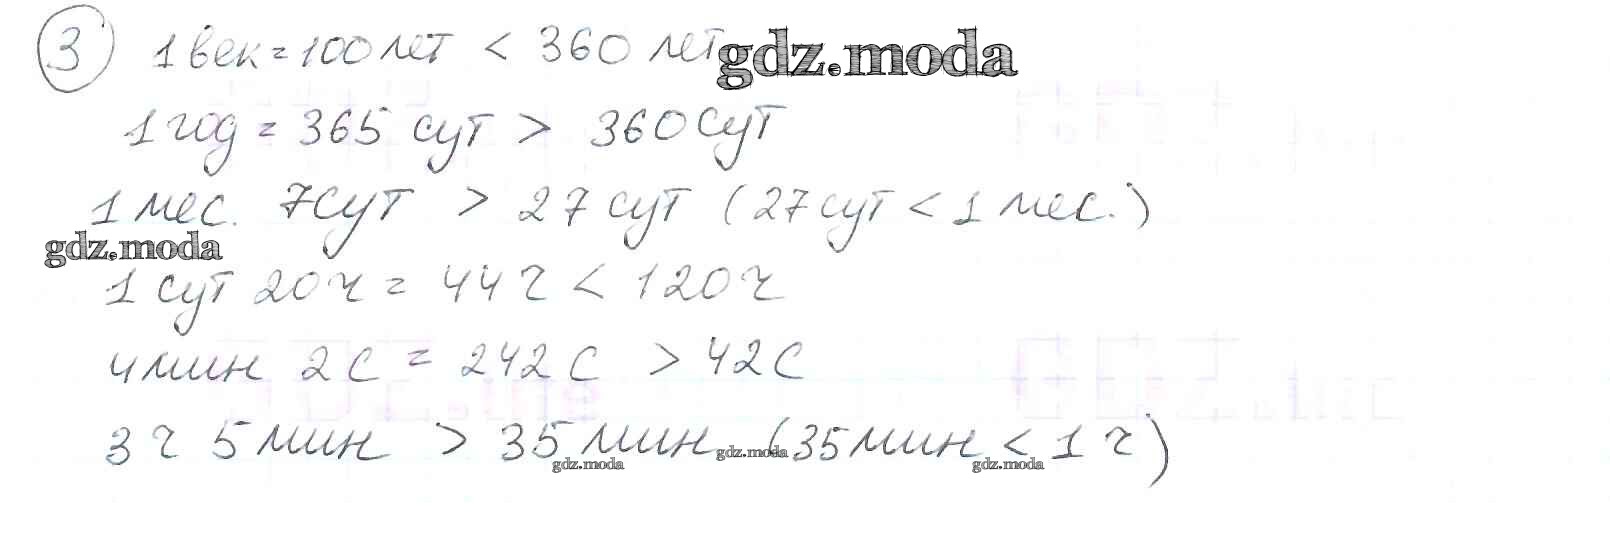 3 1 век = 100 лет < 360 лет gdz.moda
1 год = 365 сут > 360 сут
1 мес. 7 сут > 27 сут (27 сут < 1 мес.)
gdz.moda
1 сут 20 ч = 44 ч < 120 ч
4 мин 2 с = 242 с > 42 с
3 ч 5 мин > 35 мин (35 мин < 1 ч)
gdz.moda gdz.moda gdz.moda